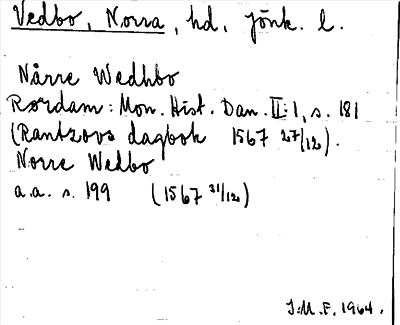 Vedbo, Norra, hd, Jönk. l.
Nårre Wedhbo
Rørdam: Mon. Hist. Dan. II:1, s. 181
(Rantzovs dagbok 1567 27/12).
Norre Wedbo
a.a. s. 199 (1567 31/12)
J.M.F. 1964.